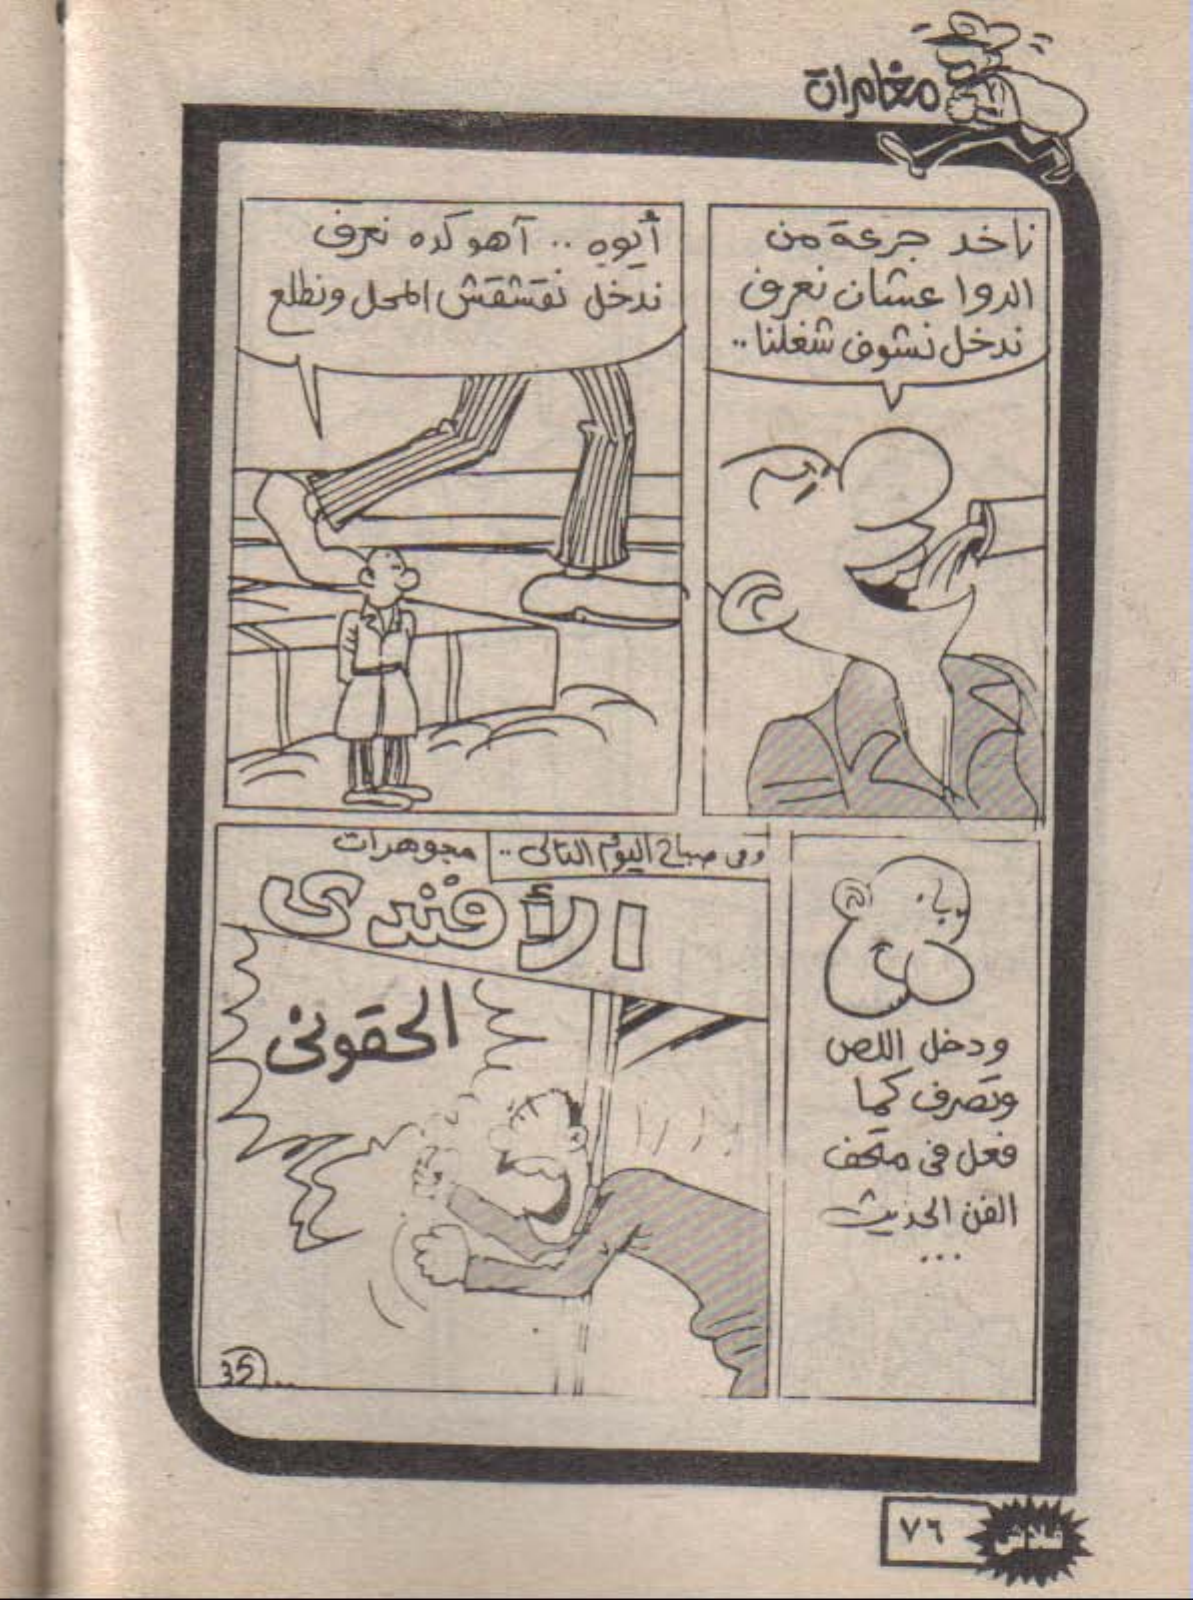 مغامرات
ناخد جرعة من
الدوا عشان نعرف
ندخل نشوف شغلنا..
أيوه .. آهو كده نعرف
ندخل نقشقش المحل ونطلع
ودخل اللص
وتصرف كما
فعل فى متحف
الفن الحديث
...
وفى صباح اليوم التالى ..
مجوهرات
الأفندى
الحقونى
35
فلاش
٧٦